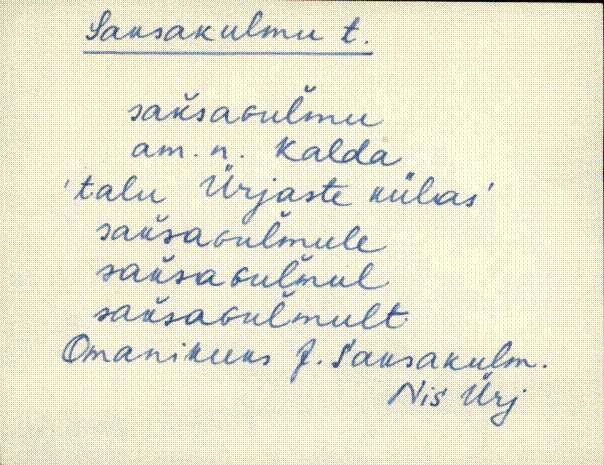 Saksakulmu t.
sak̆saGul̆mu
am. n. Kalda
'talu Ürjaste külas'
sak̆saGul̆mule
sak̆saGul̆mul
sak̆saGul̆mult
Omanikuks J. Saksakulm.
Nis Ürj